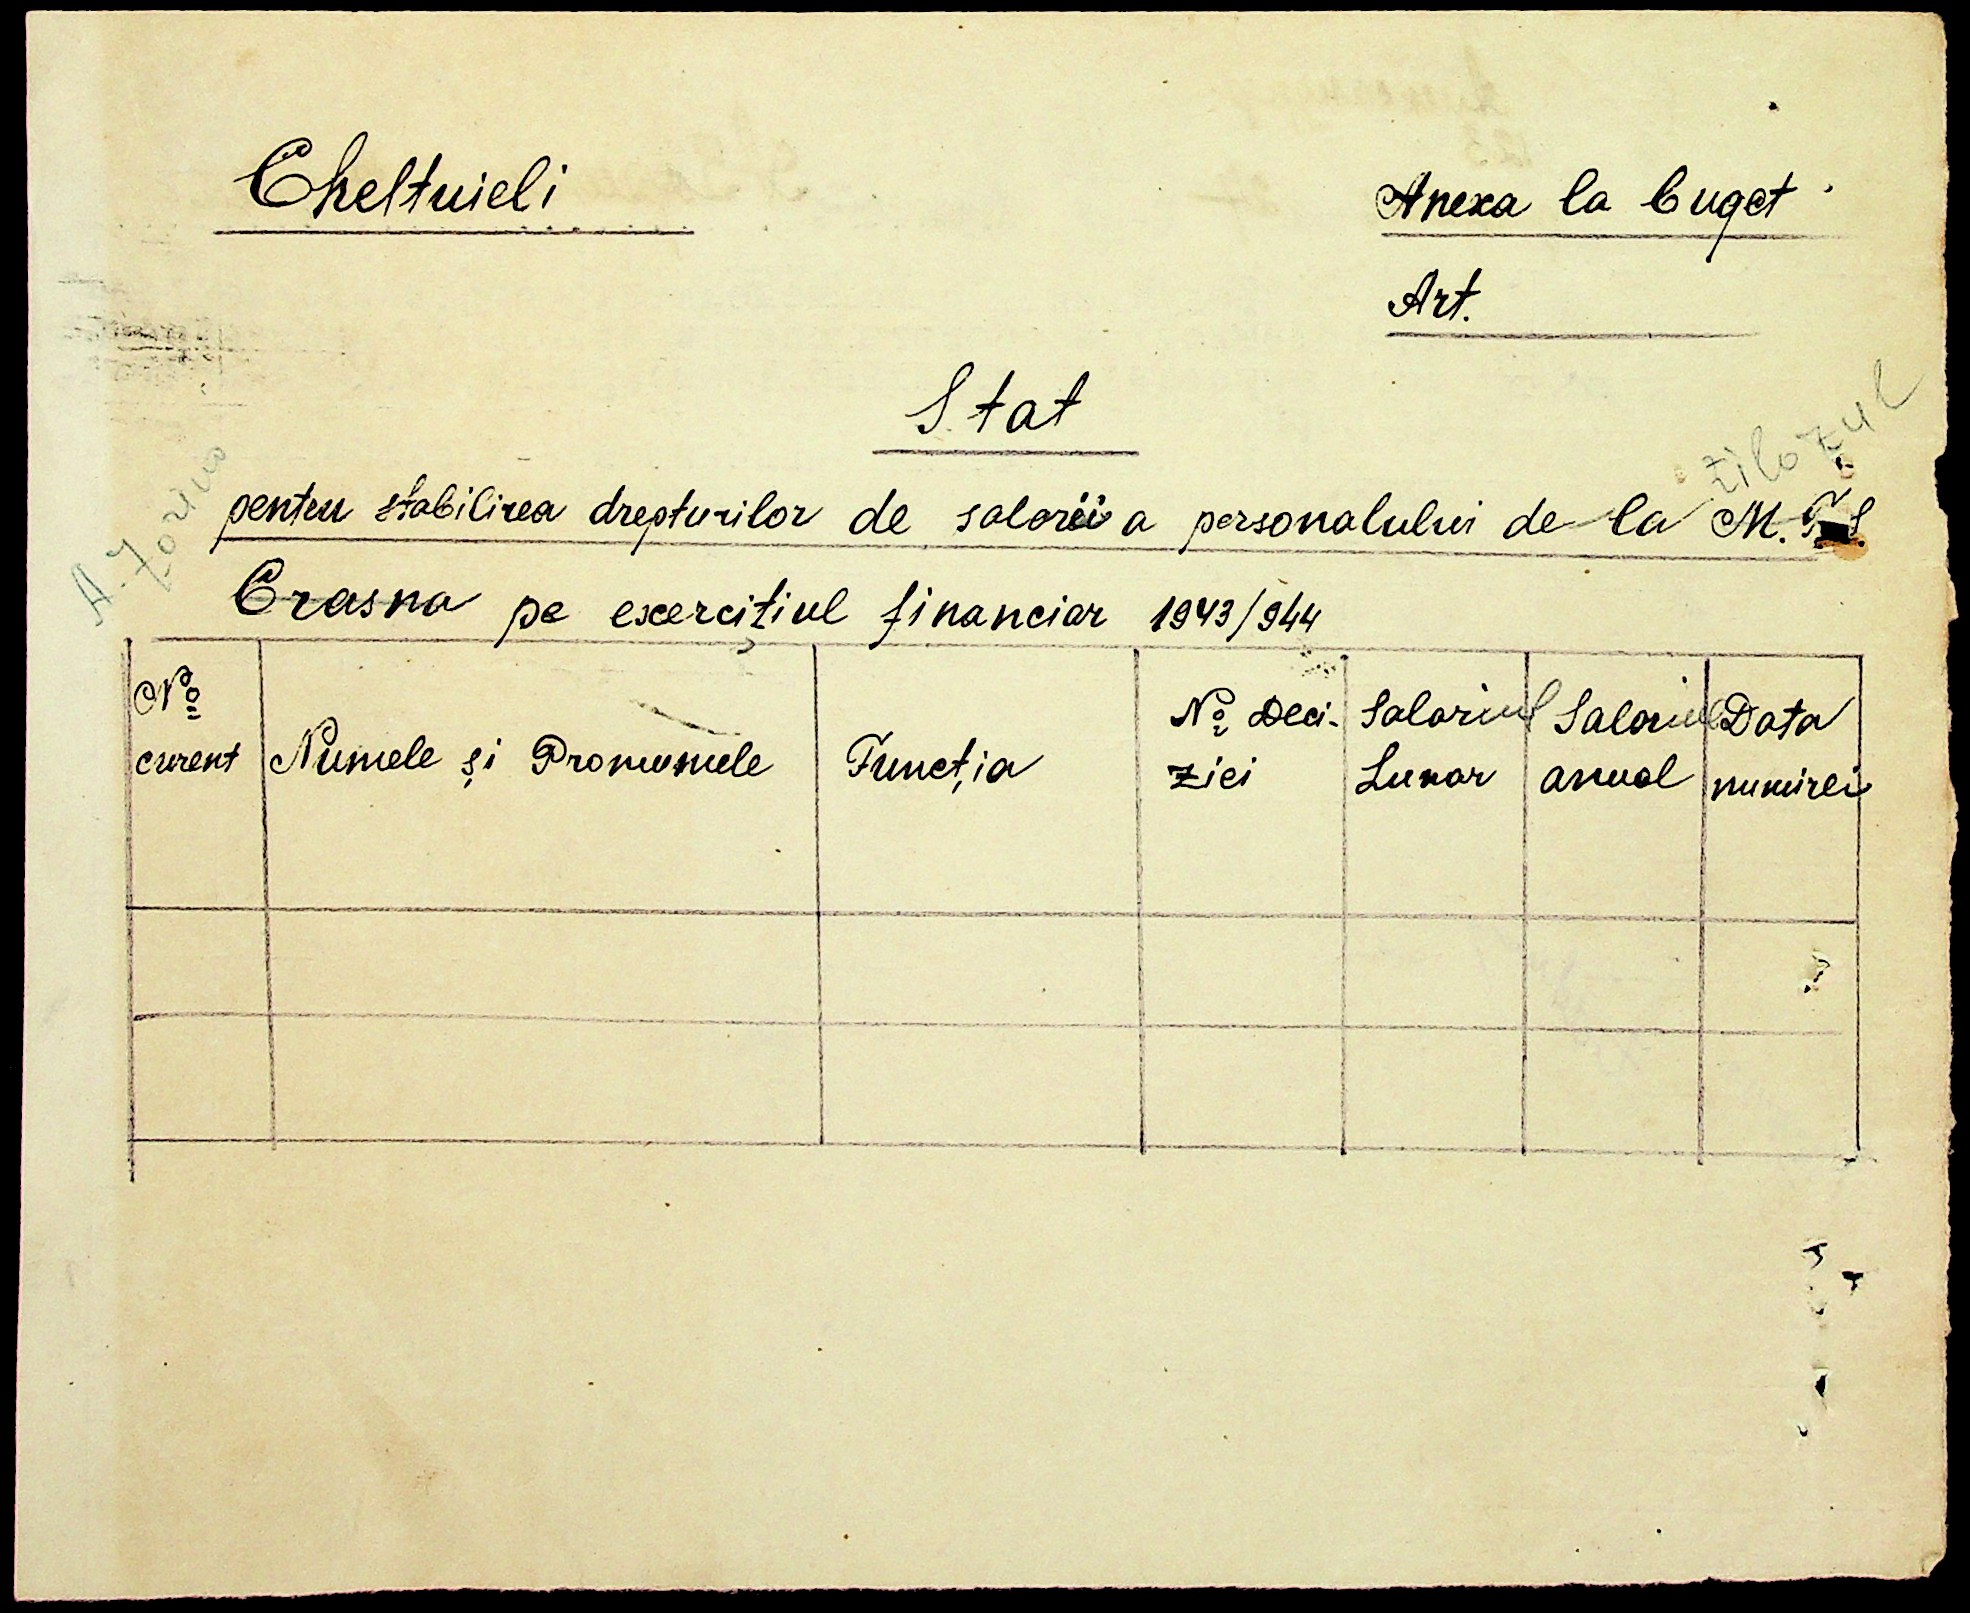 Cheltuieli
Anexa la buget
Art.
Stat
pentru stabilirea drepturilor de salarii a personalului de la M.
Crasna pe exercițiul financiar 1943/944
No curent
Numele și Pronumele
Funcția
No Deci-
ziei
Salariul
Lunar
Salariul
anual
Data
numirei